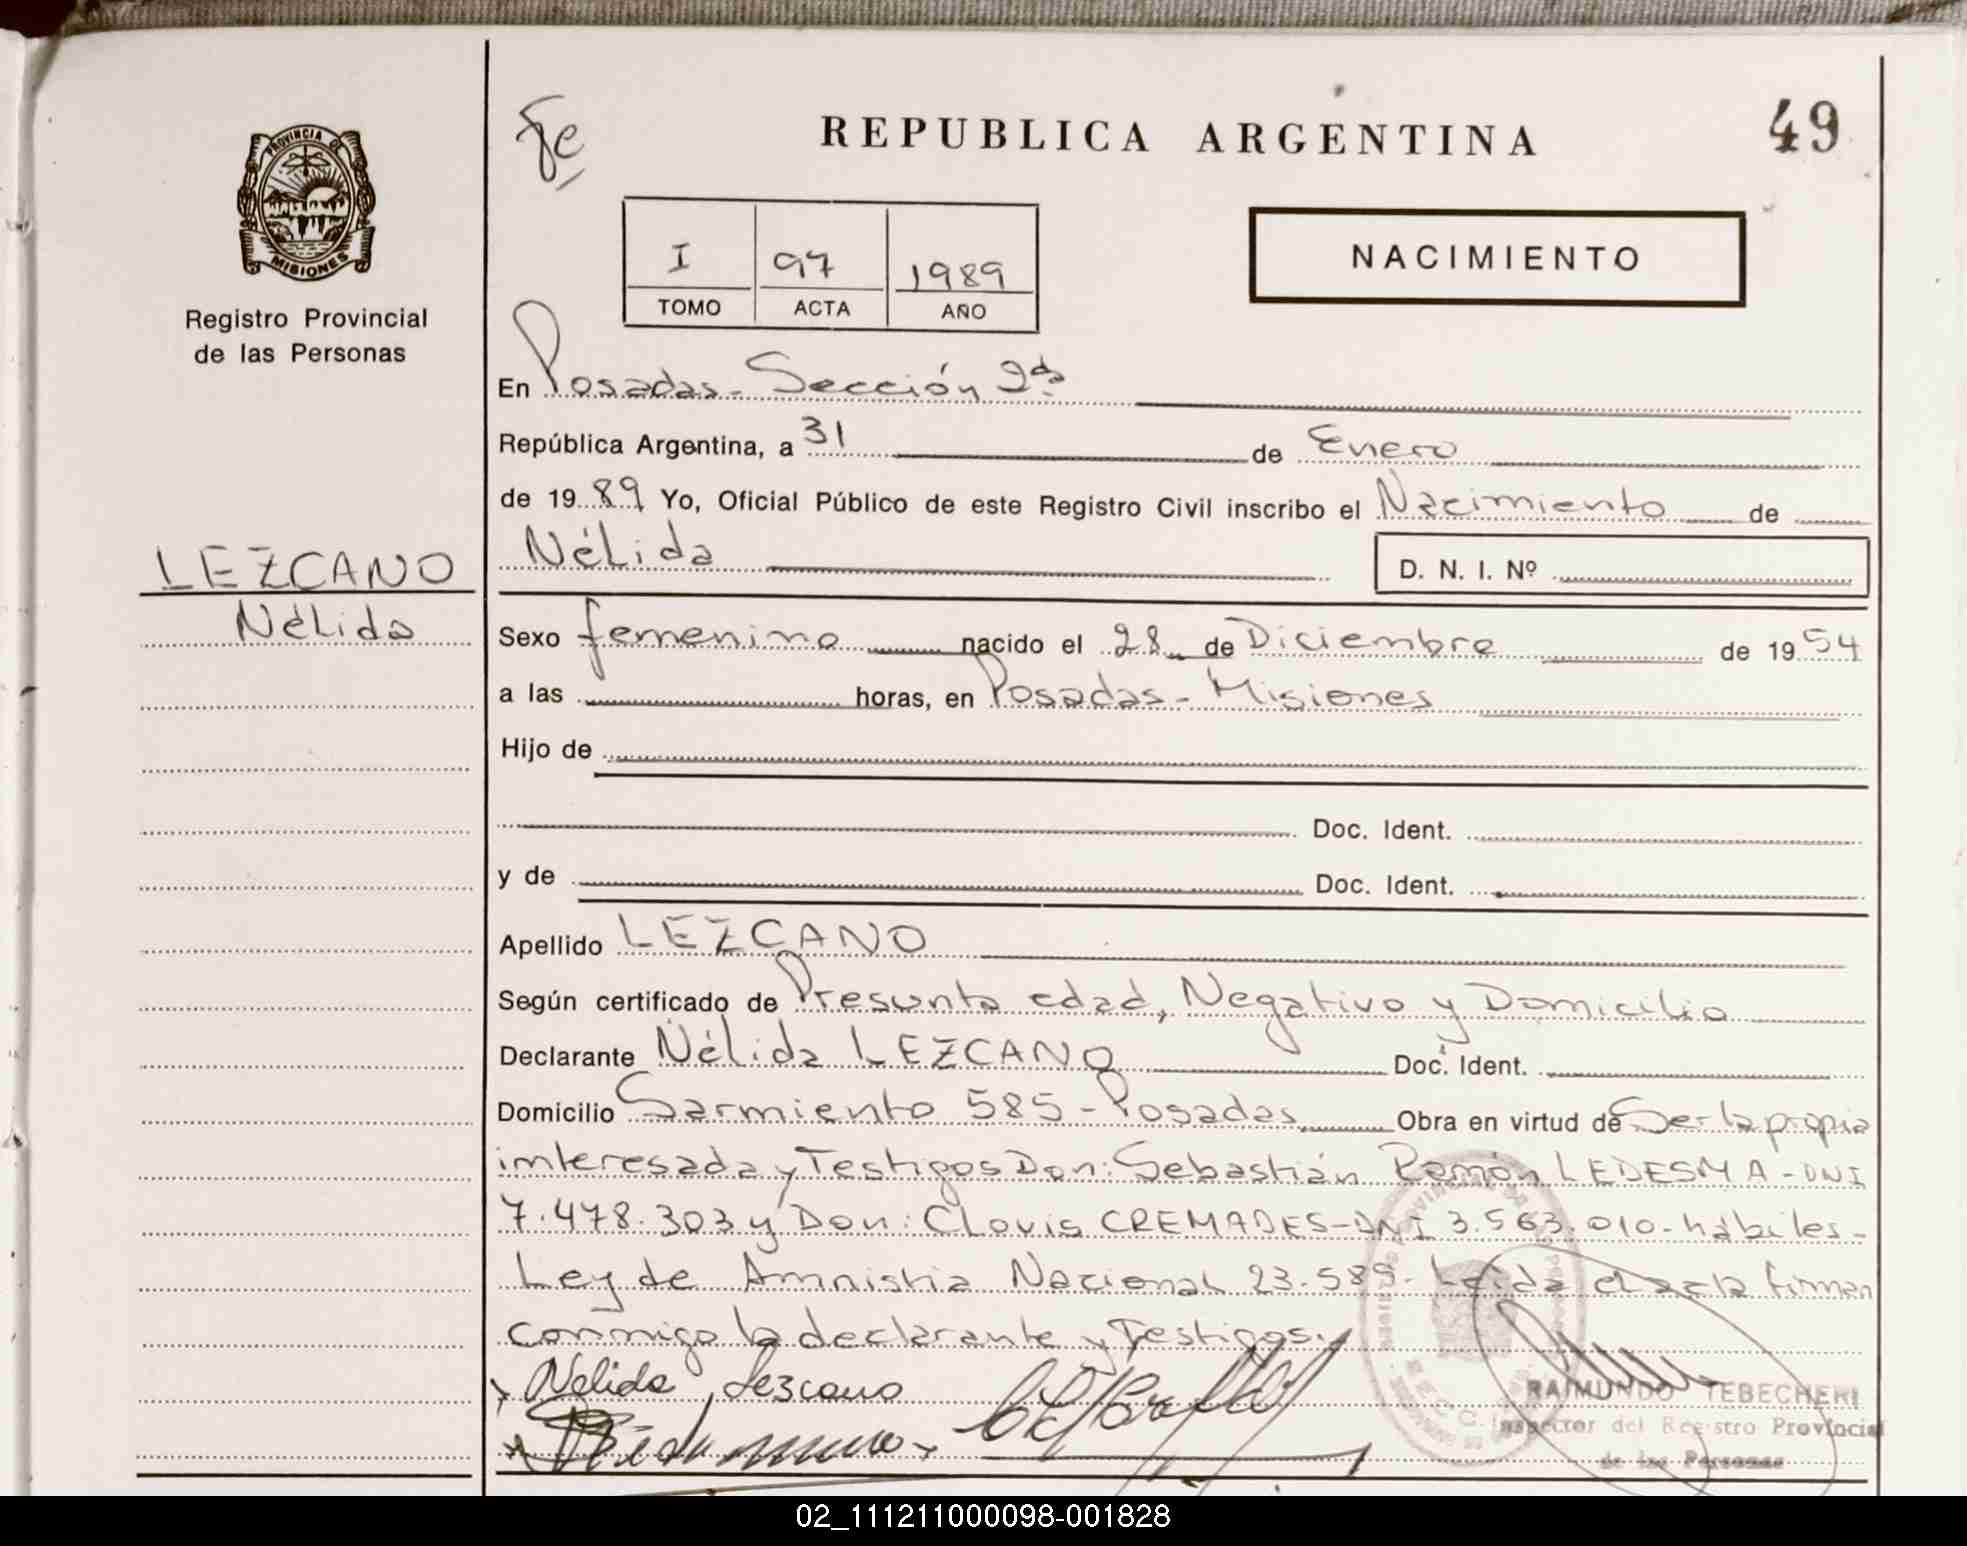 PROVINCIA DE
MISIONES
Registro Provincial
de las Personas
LEZCANO
Nélida
REPUBLICA ARGENTINA
49
I 97 1989
TOMO ACTA AÑO
NACIMIENTO
En Posadas - Sección 2da
República Argentina, a 31 de Enero
de 1989 Yo, Oficial Público de este Registro Civil inscribo el Nacimiento de
Nélida D. N. I. Nº
Sexo femenino nacido el 28 de Diciembre de 1954
a las horas, en Posadas - Misiones
Hijo de
Doc. Ident.
y de Doc. Ident.
Apellido LEZCANO
Según certificado de Presunta edad, Negativo y Domicilio
Declarante Nélida LEZCANO Doc. Ident.
Domicilio Sarmiento 585 - Posadas Obra en virtud de Ser la propia
interesada y Testigos Don: Sebastián Ramón LEDESMA - DNI
7.478.303 y Don: Clovis CREMADES - DNI 3.563.010 - hábiles -
Ley de Amnistia Nacional 23.589. Leída el acta firman
conmigo la declarante y Testigos.
Nélida Lezcano
RAIMUNDO TEBECHERI
Inspector del Registro Provincial
de las Personas
02_111211000098-001828